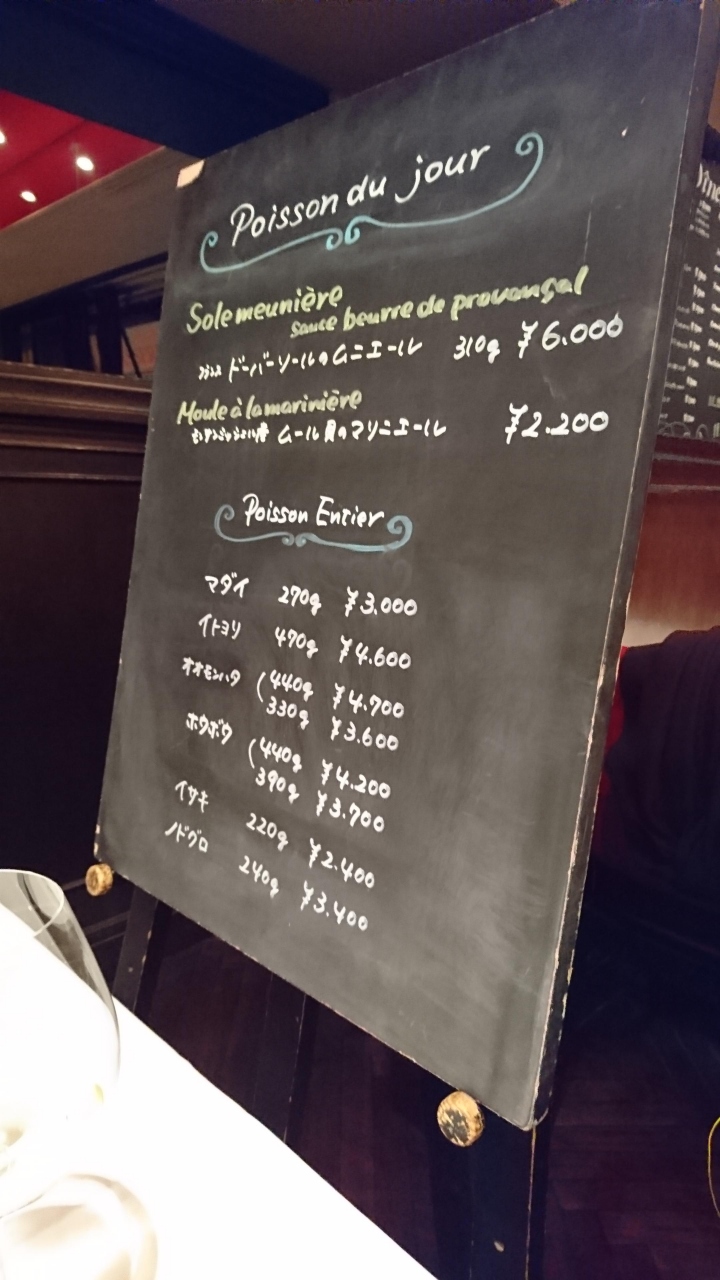 Poisson du jour
Sole meunière
Sauce beurre de provençal
フランス ドーバーソールのムニエール 310g ¥6.000
Moule à la marinière
モンサンミッシェル産 ムール貝のマリニエール ¥2.200
Poisson Entier
マダイ 270g ¥3.000
イトヨリ 470g ¥4.600
オオモンハタ (440g ¥4.700
330g ¥3.600
ホウボウ (440g ¥4.200
390g ¥3.700
イサキ 220g ¥2.400
ノドグロ 240g ¥3.400